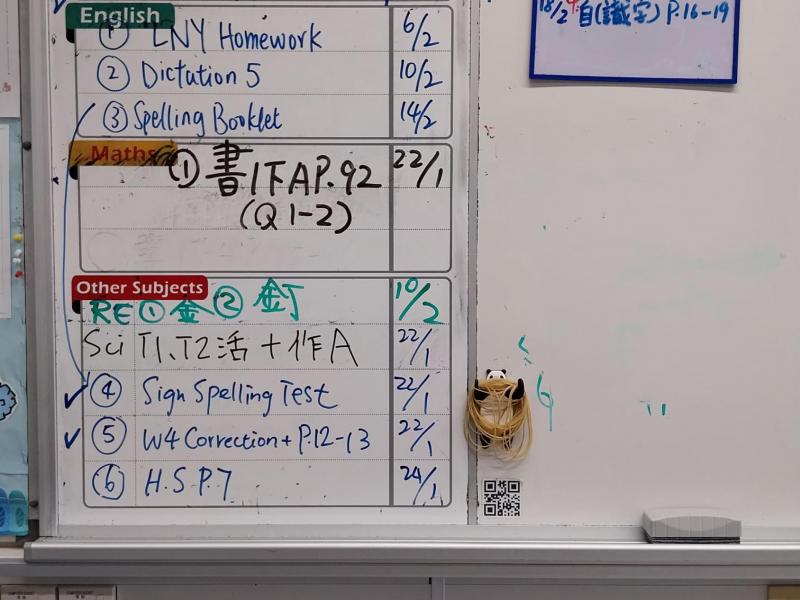 18/2 自(識字) P.16-19
English
① LNY Homework 6/2
② Dictation 5 10/2
③ Spelling Booklet 14/2
Maths
① 書1下A P.92 22/1
(Q1-2)
Other Subjects
RE ① 金 ② 釘 10/2
Sci T1.T2 活+作A 22/1
④ Sign Spelling Test 22/1
⑤ W4 Correction + P.12-13 22/1
⑥ H.S P.7 24/1